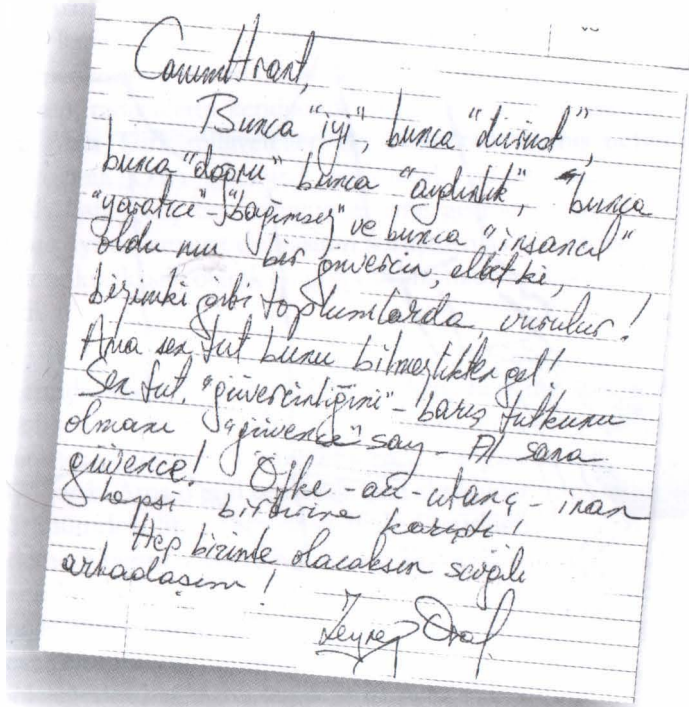 Canım Hrant,
Bunca "iyi", bunca "dürüst",
bunca "doğru" bunca "aydınlık", bunca
"yaratıcı" - "bağımsız" ve bunca "insancıl"
oldu mu bir güvercin, elbet ki,
bizimki gibi toplumlarda, vurulur!
Ama sen tut bunu bilmezlikten gel!
Sen tut, "güvercinliğini" - barış tutkunu
olmanı "güvence" say - Al sana
güvence! Öfke - acı - utanç - inan
hepsi birbirine karıştı!
Hep bizimle olacaksın sevgili
arkadaşım!
Zeynep Oral